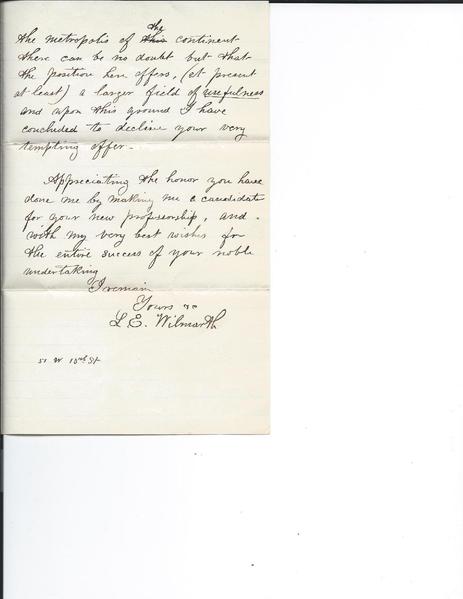 the
the metropolis of this continent
there can be no doubt but that
the position here offers, (at present
at least) a larger field of usefulness
and upon this ground I have
concluded to decline your very
tempting offer -
Appreciating the honor you have
done me by making me a candidate
for your new professorship, and -
with my very best wishes for
the entire success of your noble
undertaking
I remain
Yours
L. E. Wilmarth
51 W 10th St